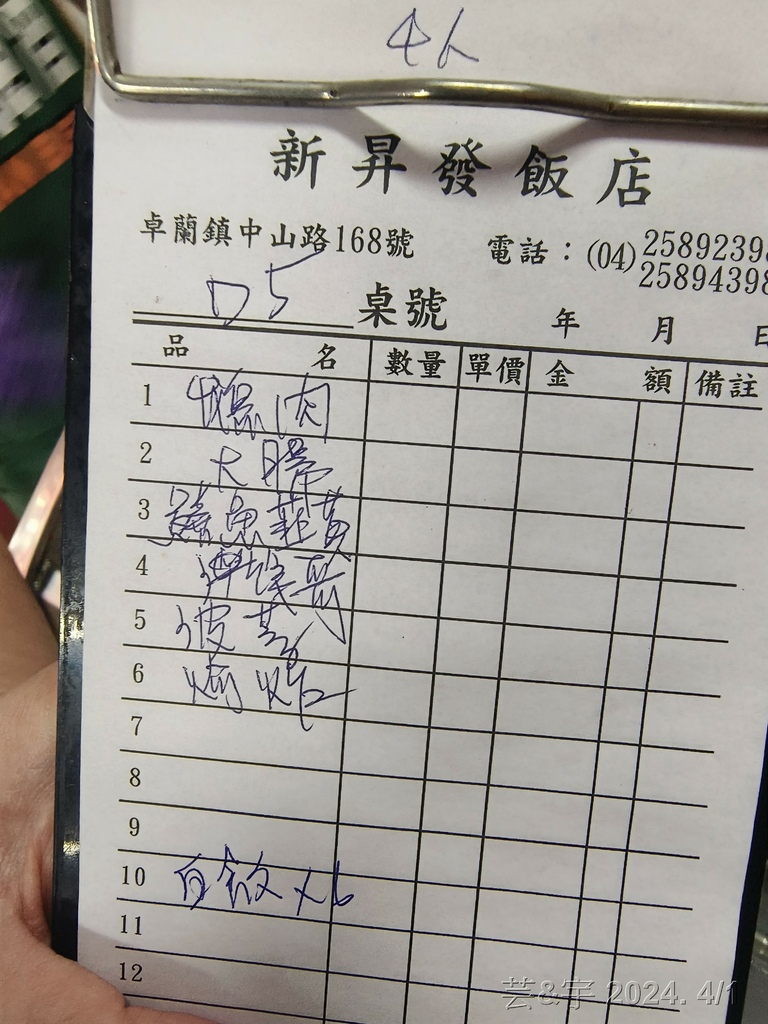 4人
新昇發飯店
卓蘭鎮中山路168號 電話：(04) 2589239
2589439
D5 桌號 年 月 日
品名 數量 單價 金額 備註
1 肉
2 大腸
3 魚韭黃
4
5
6
7
8
9
10 白飯
11
12
芸&宇 2024. 4/1